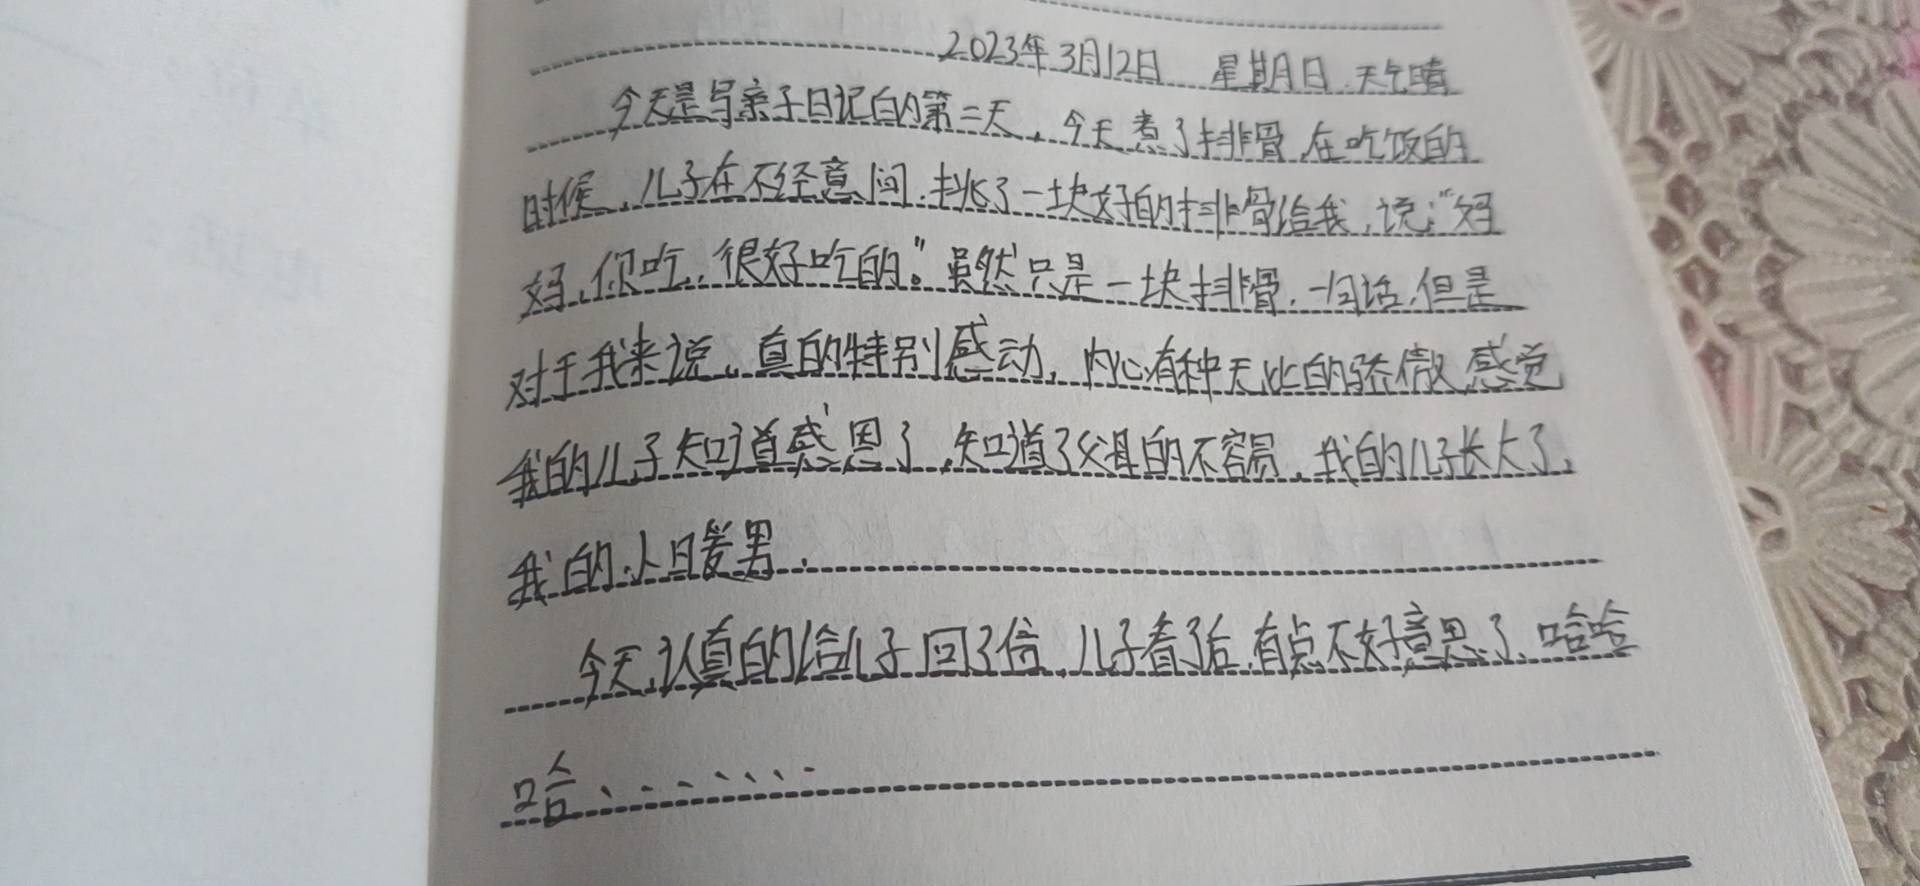 2023年3月12日 星期日 天气晴
今天是写亲子日记的第二天，今天煮了排骨，在吃饭的
时候，儿子在不经意间，挑了一块好的排骨给我，说："妈
妈，你吃，很好吃的。"虽然只是一块排骨，一句话，但是
对于我来说，真的特别感动，内心有种无比的骄傲，感觉
我的儿子知道感恩了，知道了父母的不容易，我的儿子长大了，
我的小暖男.
今天，认真的给儿子回了信，儿子看了后，有点不好意思了，哈哈
哈、......